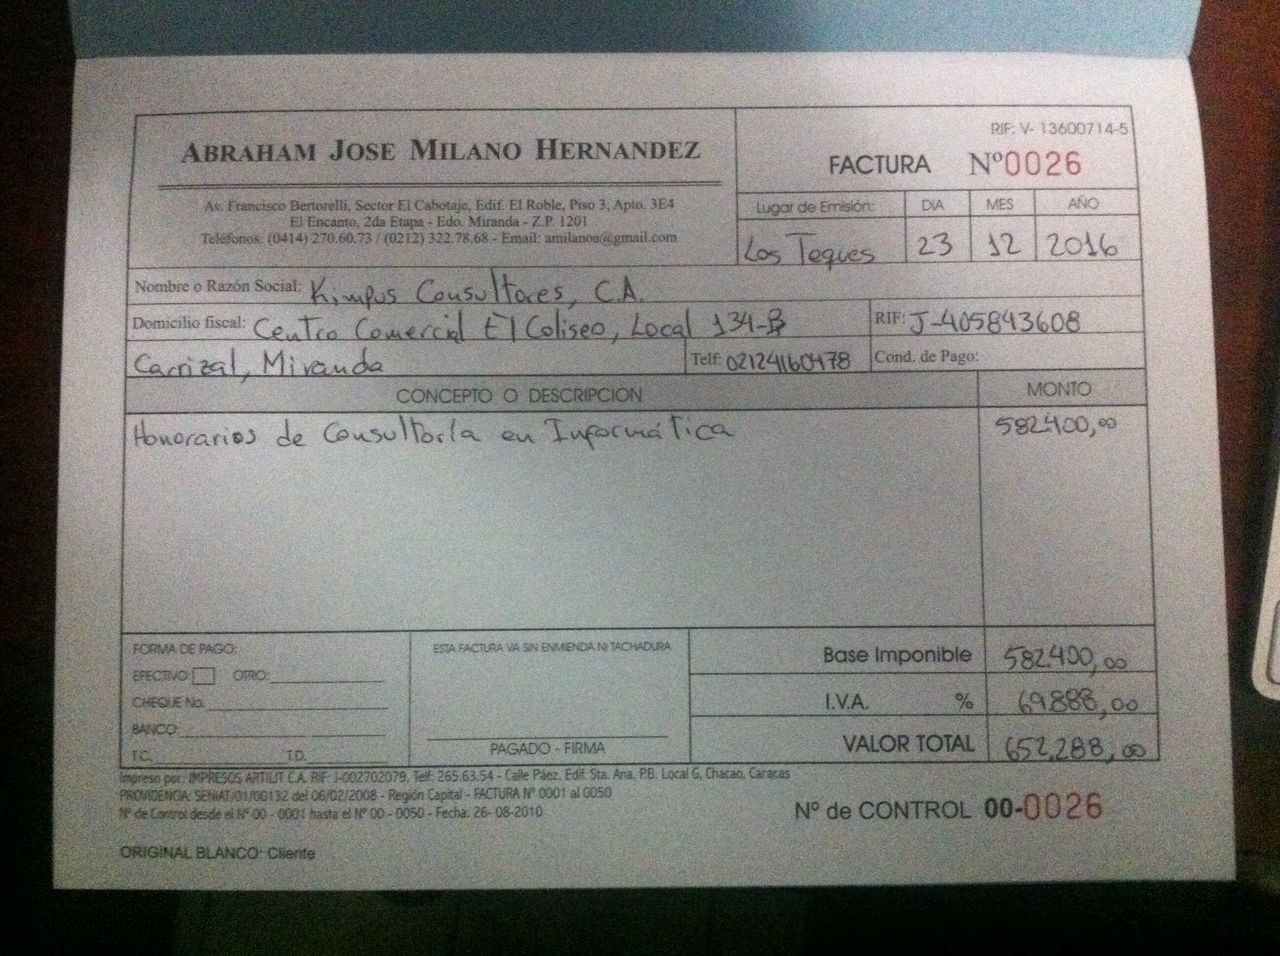 ABRAHAM JOSE MILANO HERNANDEZ
Av. Francisco Bertorelli, Sector El Cabotaje, Edif. El Roble, Piso 3, Apto. 3E4
El Encanto, 2da Etapa - Edo. Miranda - Z.P. 1201
Teléfonos: (0414) 270.60.73 / (0212) 322.78.68 - Email: amilanoa@gmail.com
RIF: V- 13600714-5
FACTURA Nº0026
Lugar de Emisión: DIA MES AÑO
Los Teques 23 12 2016
Nombre o Razón Social: Kimpus Consultores, C.A.
Domicilio fiscal: Centro Comercial El Coliseo, Local 134-B RIF: J-405843608
Carrizal, Miranda Telf: 02124160478 Cond. de Pago:
CONCEPTO O DESCRIPCION MONTO
Honorarios de Consultoría en Informática 582.400,00
FORMA DE PAGO:
EFECTIVO OTRO:
CHEQUE No.
BANCO:
T.C. T.D.
ESTA FACTURA VA SIN ENMIENDA NI TACHADURA
PAGADO - FIRMA
Base Imponible 582.400,00
I.V.A. % 69.888,00
VALOR TOTAL 652.288,00
Impreso por: IMPRESOS ARTILIT C.A. RIF: J-002702079, Telf: 265.63.54 - Calle Páez, Edif. Sta. Ana, P.B. Local G, Chacao, Caracas
PROVIDENCIA: SENIAT/01/00132 del 06/02/2008 - Región Capital - FACTURA Nº 0001 al 0050
Nº de Control desde el Nº 00 - 0001 hasta el Nº 00 - 0050 - Fecha: 26- 08-2010
Nº de CONTROL 00-0026
ORIGINAL BLANCO: Cliente